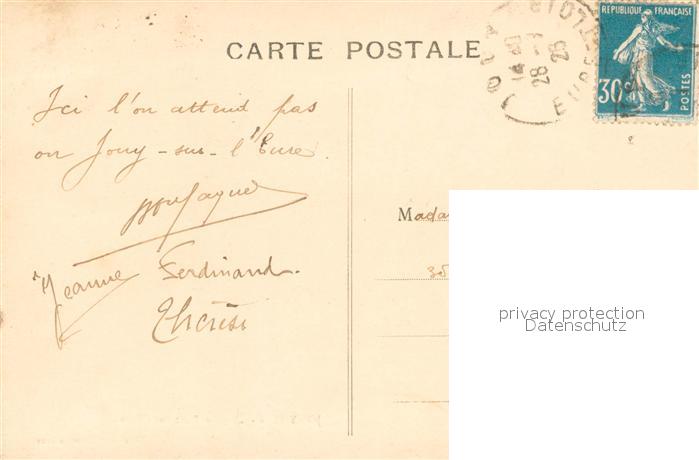 CARTE POSTALE
RÉPUBLIQUE FRANÇAISE
30
POSTES
28
28
EURE
Ici l'on attend pas
on Jouy-sur-l'Eure.
Jeanne Ferdinand.
Thérèse
Mada
35
privacy protection
Datenschutz